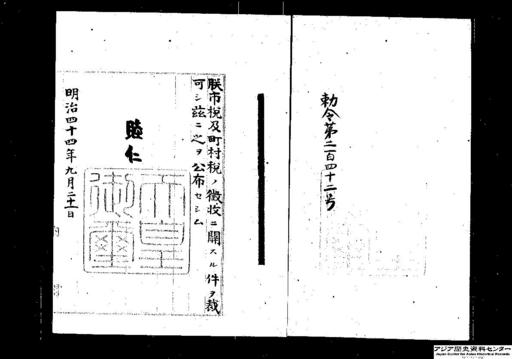 勅令第二百四十二号
朕市税及町村税ノ徴収ニ関スル件ヲ裁
可シ茲ニ之ヲ公布セシム
睦仁
天皇御璽
明治四十四年九月二十一日
アジア歴史資料センター
Japan Center for Asian Historical Records